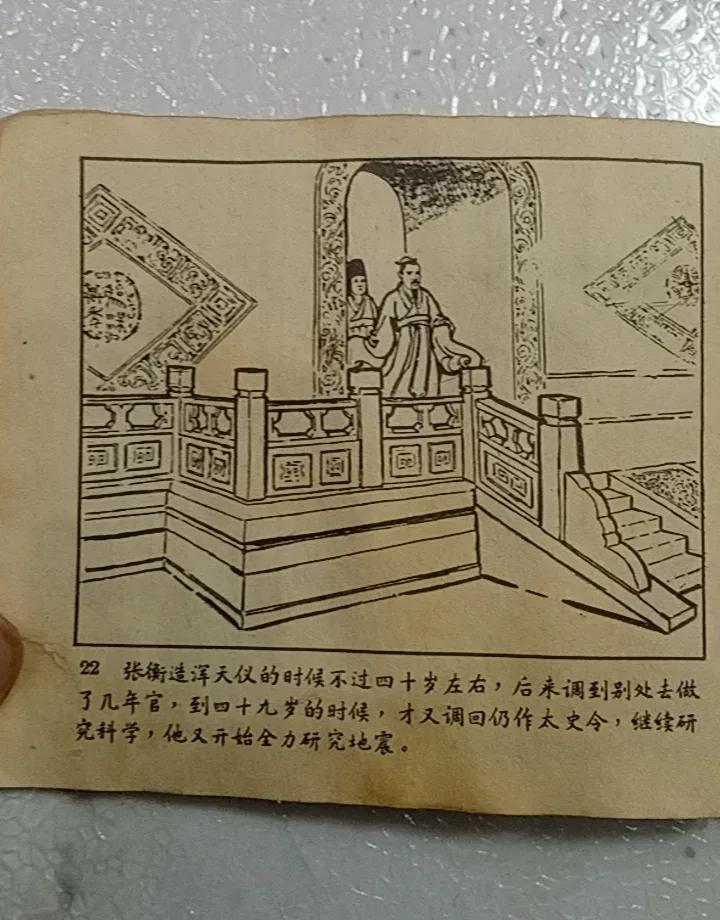 22 张衡造浑天仪的时候不过四十岁左右，后来调到别处去做
了几年官，到四十九岁的时候，才又调回仍作太史令，继续研
究科学，他又开始全力研究地震。